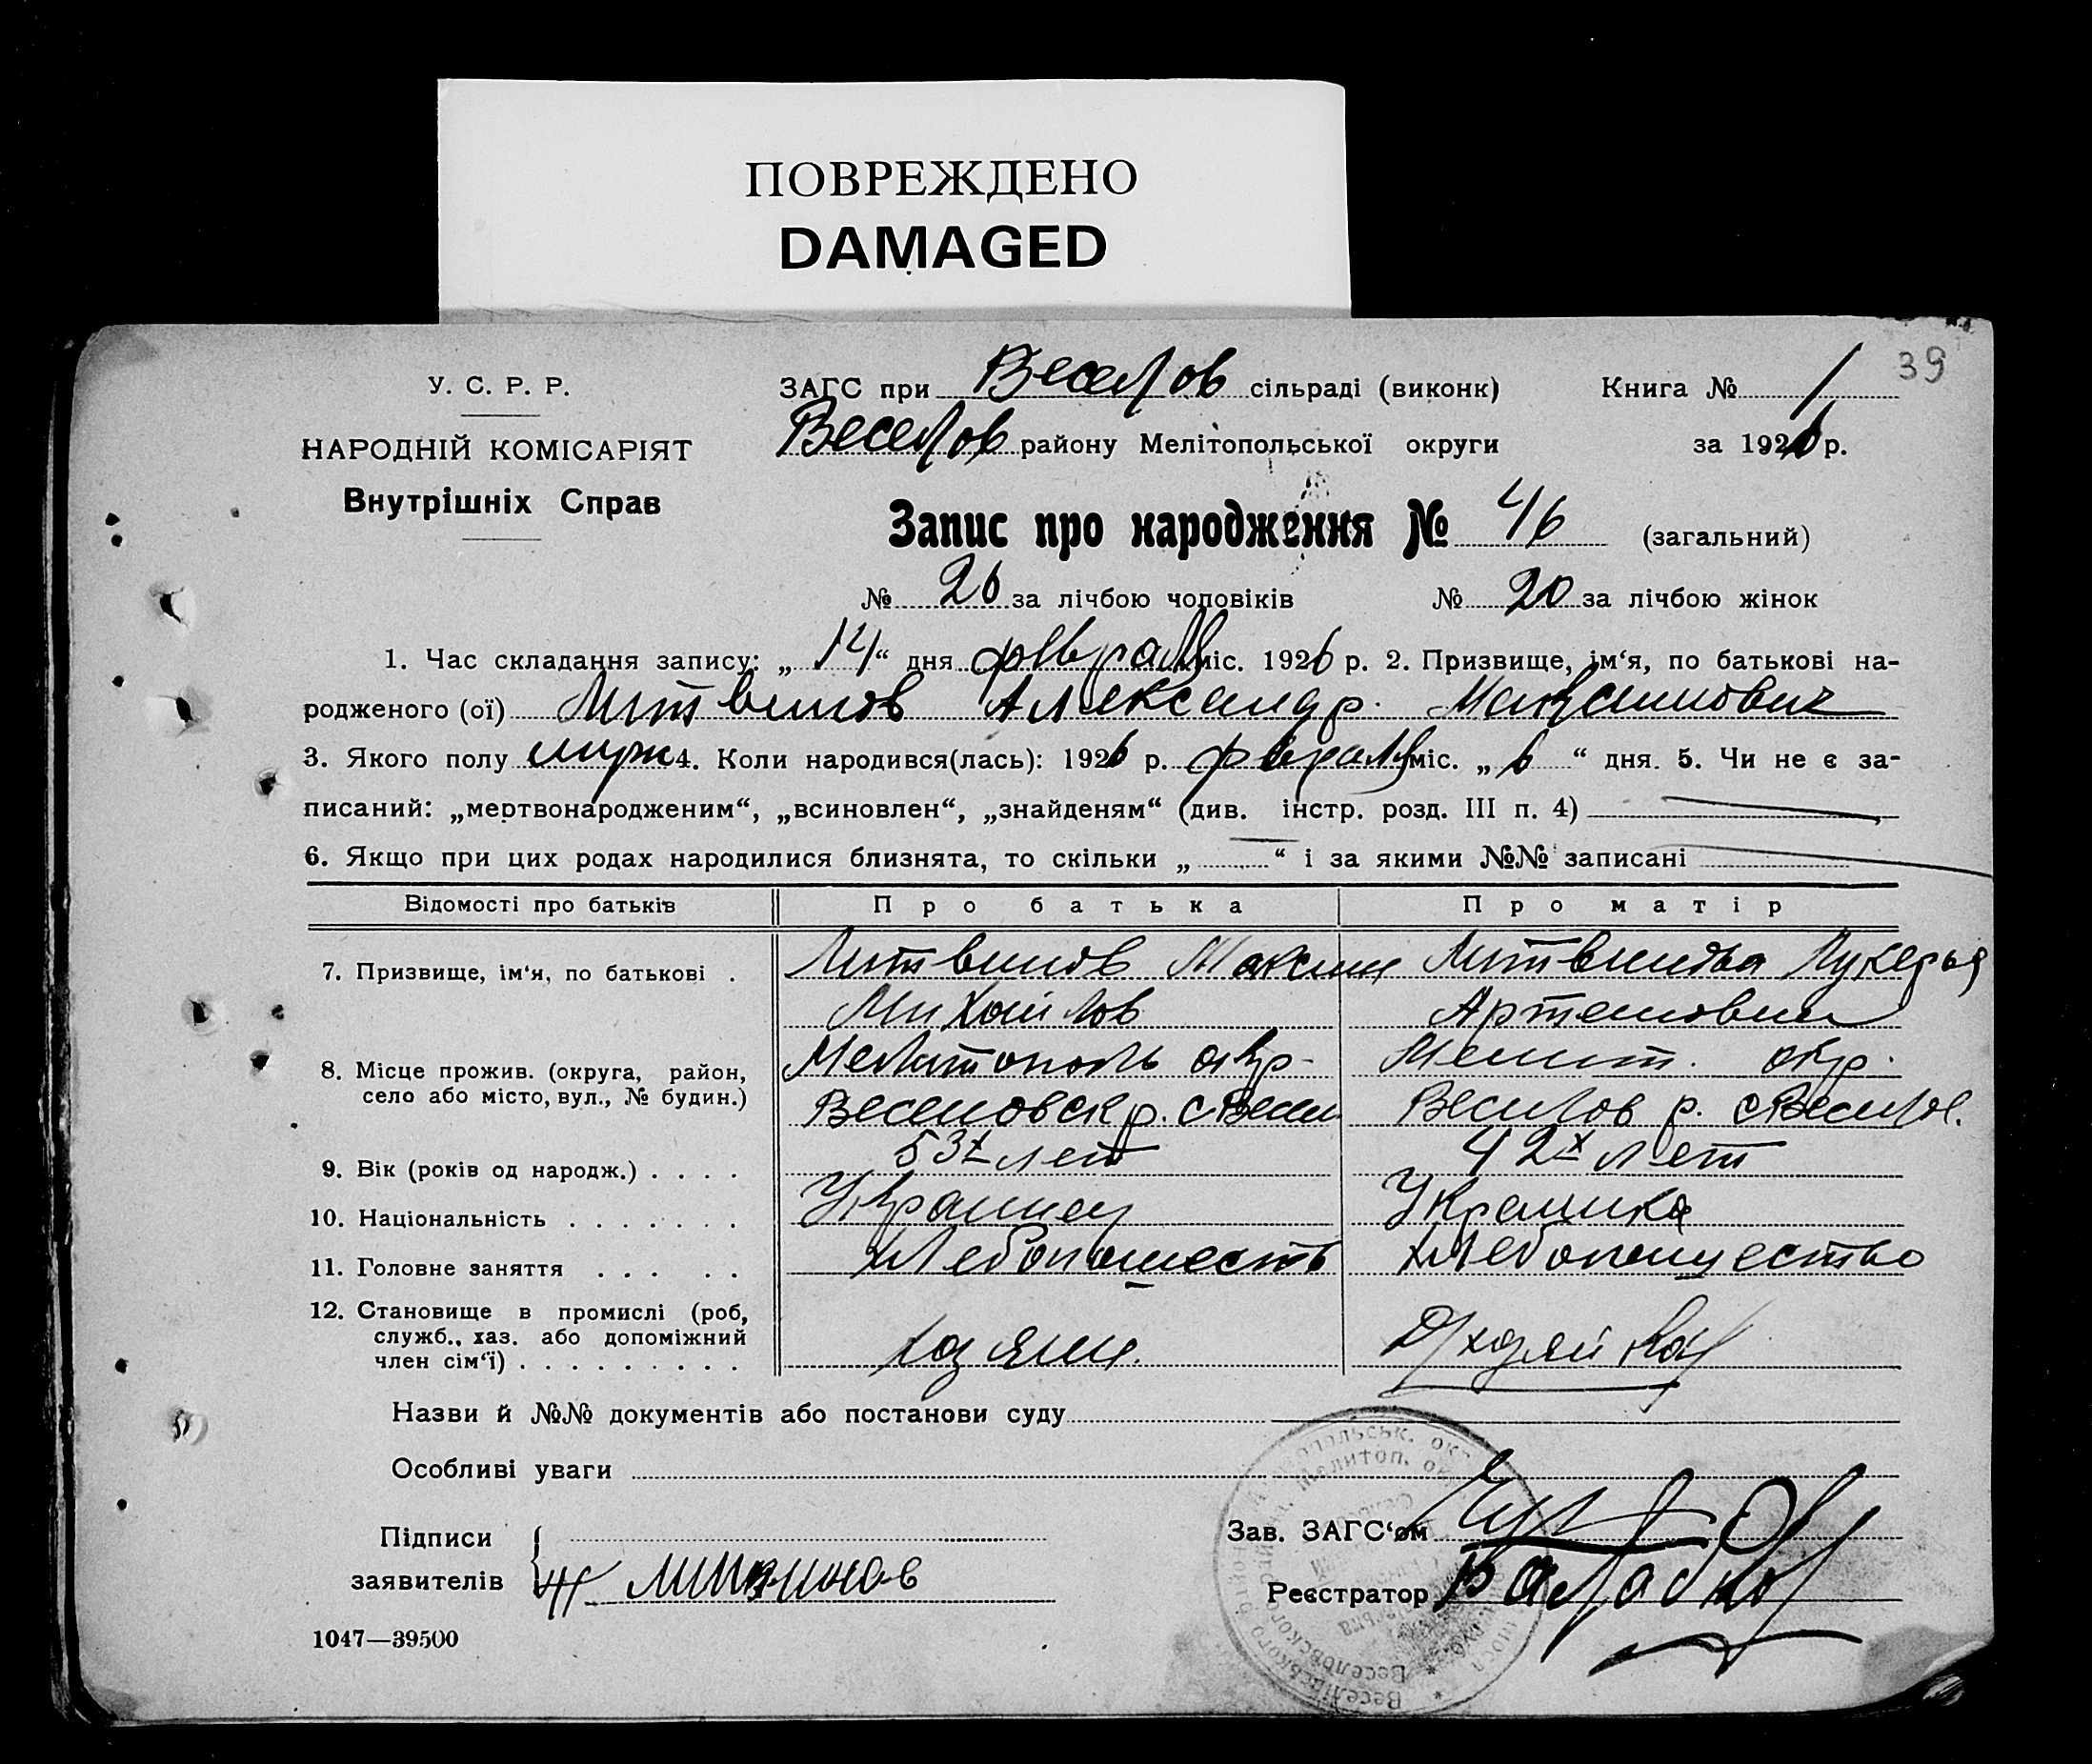 ПОВРЕЖДЕНО
DAMAGED
39
У. С. Р. Р.
НАРОДНІЙ КОМІСАРІЯТ
Внутрішніх Справ
ЗАГС при Веселов сільраді (виконк) Книга № 1
Веселов району Мелітопольської округи за 1926 р.
Запис про народження № 46 (загальний)
№ 26 за лічбою чоловіків № 20 за лічбою жінок
1. Час складання запису: „ 14 “ дня февраля міс. 1926 р. 2. Призвище, ім‘я, по батькові на-
родженого (ої) Литвинов Александр. Максимович
3. Якого полу муж 4. Коли народився(лась): 1926 р. февраля міс. „ 6 “ дня. 5. Чи не є за-
писаний: „мертвонародженим“, „всиновлен“, „знайденям“ (див. інстр. розд. III п. 4)
6. Якщо при цих родах народилися близнята, то скільки „ “ і за якими №№ записані
Відомості про батьків Про батька Про матір
7. Призвище, ім‘я, по батькові . Литвинов Максим Литвинова Лукерья
Михайлов Артемовна
8. Місце прожив. (округа, район, Мелитополь окр. Мелит. окр.
село або місто, вул., № будин.) Веселовск р. с Весел Веселов р. с Веселов.
9. Вік (років од народж.) . . . . 53х лет 42х лет
10. Національність . . . . . . . Украинец Украинка
11. Головне заняття . . . . . Хлебопашеств Хлебопашество
12. Становище в промислі (роб,
служб., хаз. або допоміжний
член сім‘ї) . . . . . . . . . хозяин.
Назви й №№ документів або постанови суду
Особливі уваги
Підписи
заявителів Литвинов
Зав. ЗАГС‘ом
Реєстратор
1047—39500